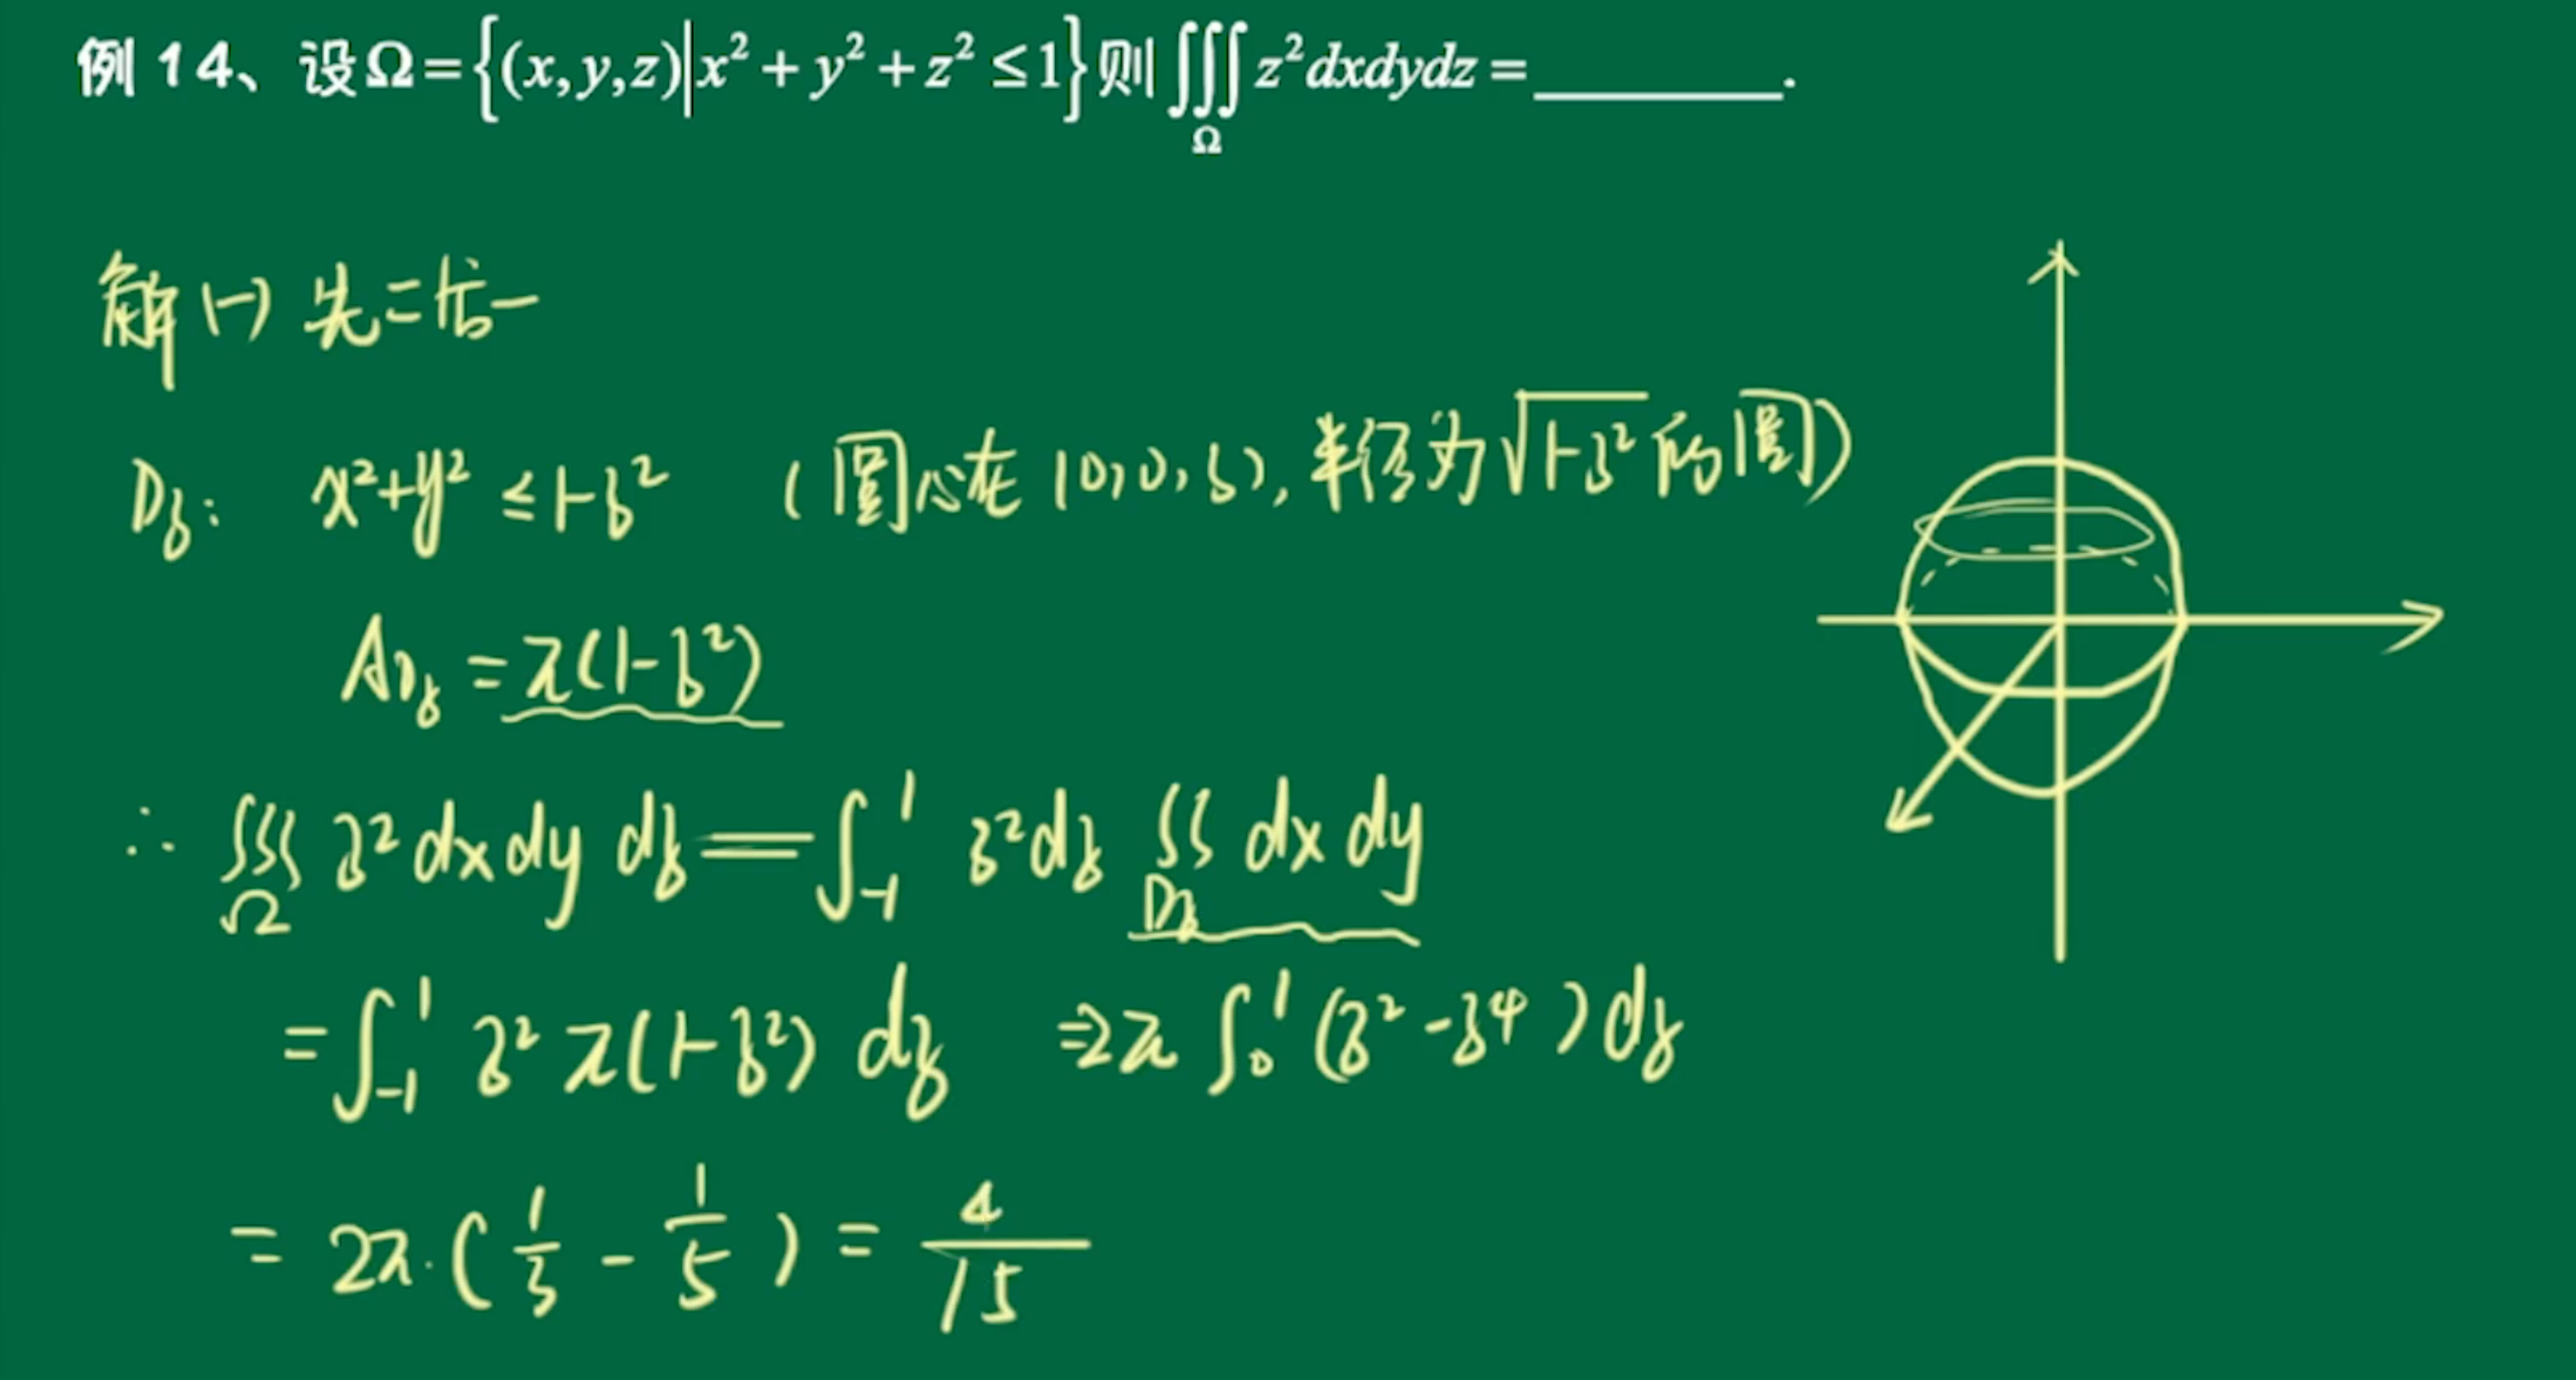 例 14、设Ω={(x,y,z)|x²+y²+z²≤1}则∭_Ω z²dxdydz=________.
解(一) 先二后一
Dz: x²+y²≤1-z² (圆心在(0,0,z),半径为√(1-z²)的圆)
A_Dz = π(1-z²)
∴ ∭_Ω z² dx dy dz = ∫_{-1}^{1} z² dz ∬_Dz dx dy
= ∫_{-1}^{1} z² π(1-z²) dz = 2π ∫_0^1 (z²-z⁴) dz
= 2π·(1/3 - 1/5) = 4/15